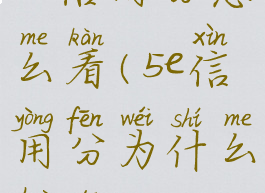 me kàn xìn
么看(5e信
yòng fēn wéi shí me
用分为什么